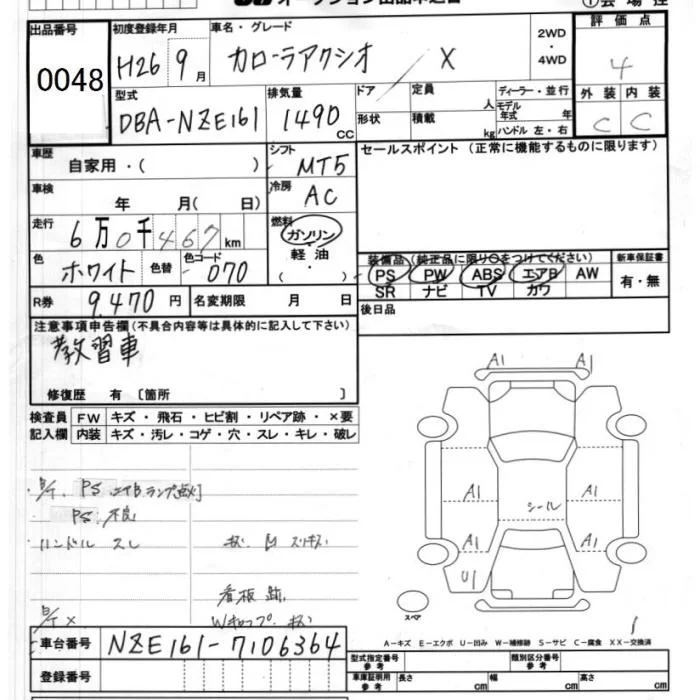 オークション出品申込書
出品番号 初度登録年月 車名・グレード 2WD・4WD 評価点
0048 H26 9月 カローラアクシオ / X 4
型式 排気量 ドア 定員 人 ディーラー・並行 外装 内装
DBA-NZE161 1490cc 形状 積載 kg モデル年式 年 ハンドル 左・右 C C
車歴 自家用・( ) シフト MT5 セールスポイント (正常に機能するものに限ります)
車検 年 月( 日) 冷房 AC
走行 6万0千467km 燃料 ガソリン・軽油・( )
色 ホワイト 色替 色コード 070
装備品 (純正品に限り○をつけてください) 新車保証書
PS PW ABS エアB AW 有・無
SR ナビ TV カワ
R券 9,470円 名変期限 月 日 後日品
注意事項申告欄 (不具合内容等は具体的に記入して下さい)
教習車
修復歴 有 〔箇所 〕
検査員 FW キズ・飛石・ヒビ割・リペア跡・×要
記入欄 内装 キズ・汚レ・コゲ・穴・スレ・キレ・破レ
A1 A1
・ PS エアB.ランプ点灯
A1 A1
・ PS 不良
シール
・ハンドル スレ
A1 A1
U1
看板跡
スペア
A-キズ E-エクボ U-凹み W-補修跡 S-サビ C-腐食 XX-交換済
車台番号 NZE161-7106364
登録番号
型式指定番号 参考 類別区分番号 参考
車庫証明用 参考 長さ cm 幅 cm 高さ cm